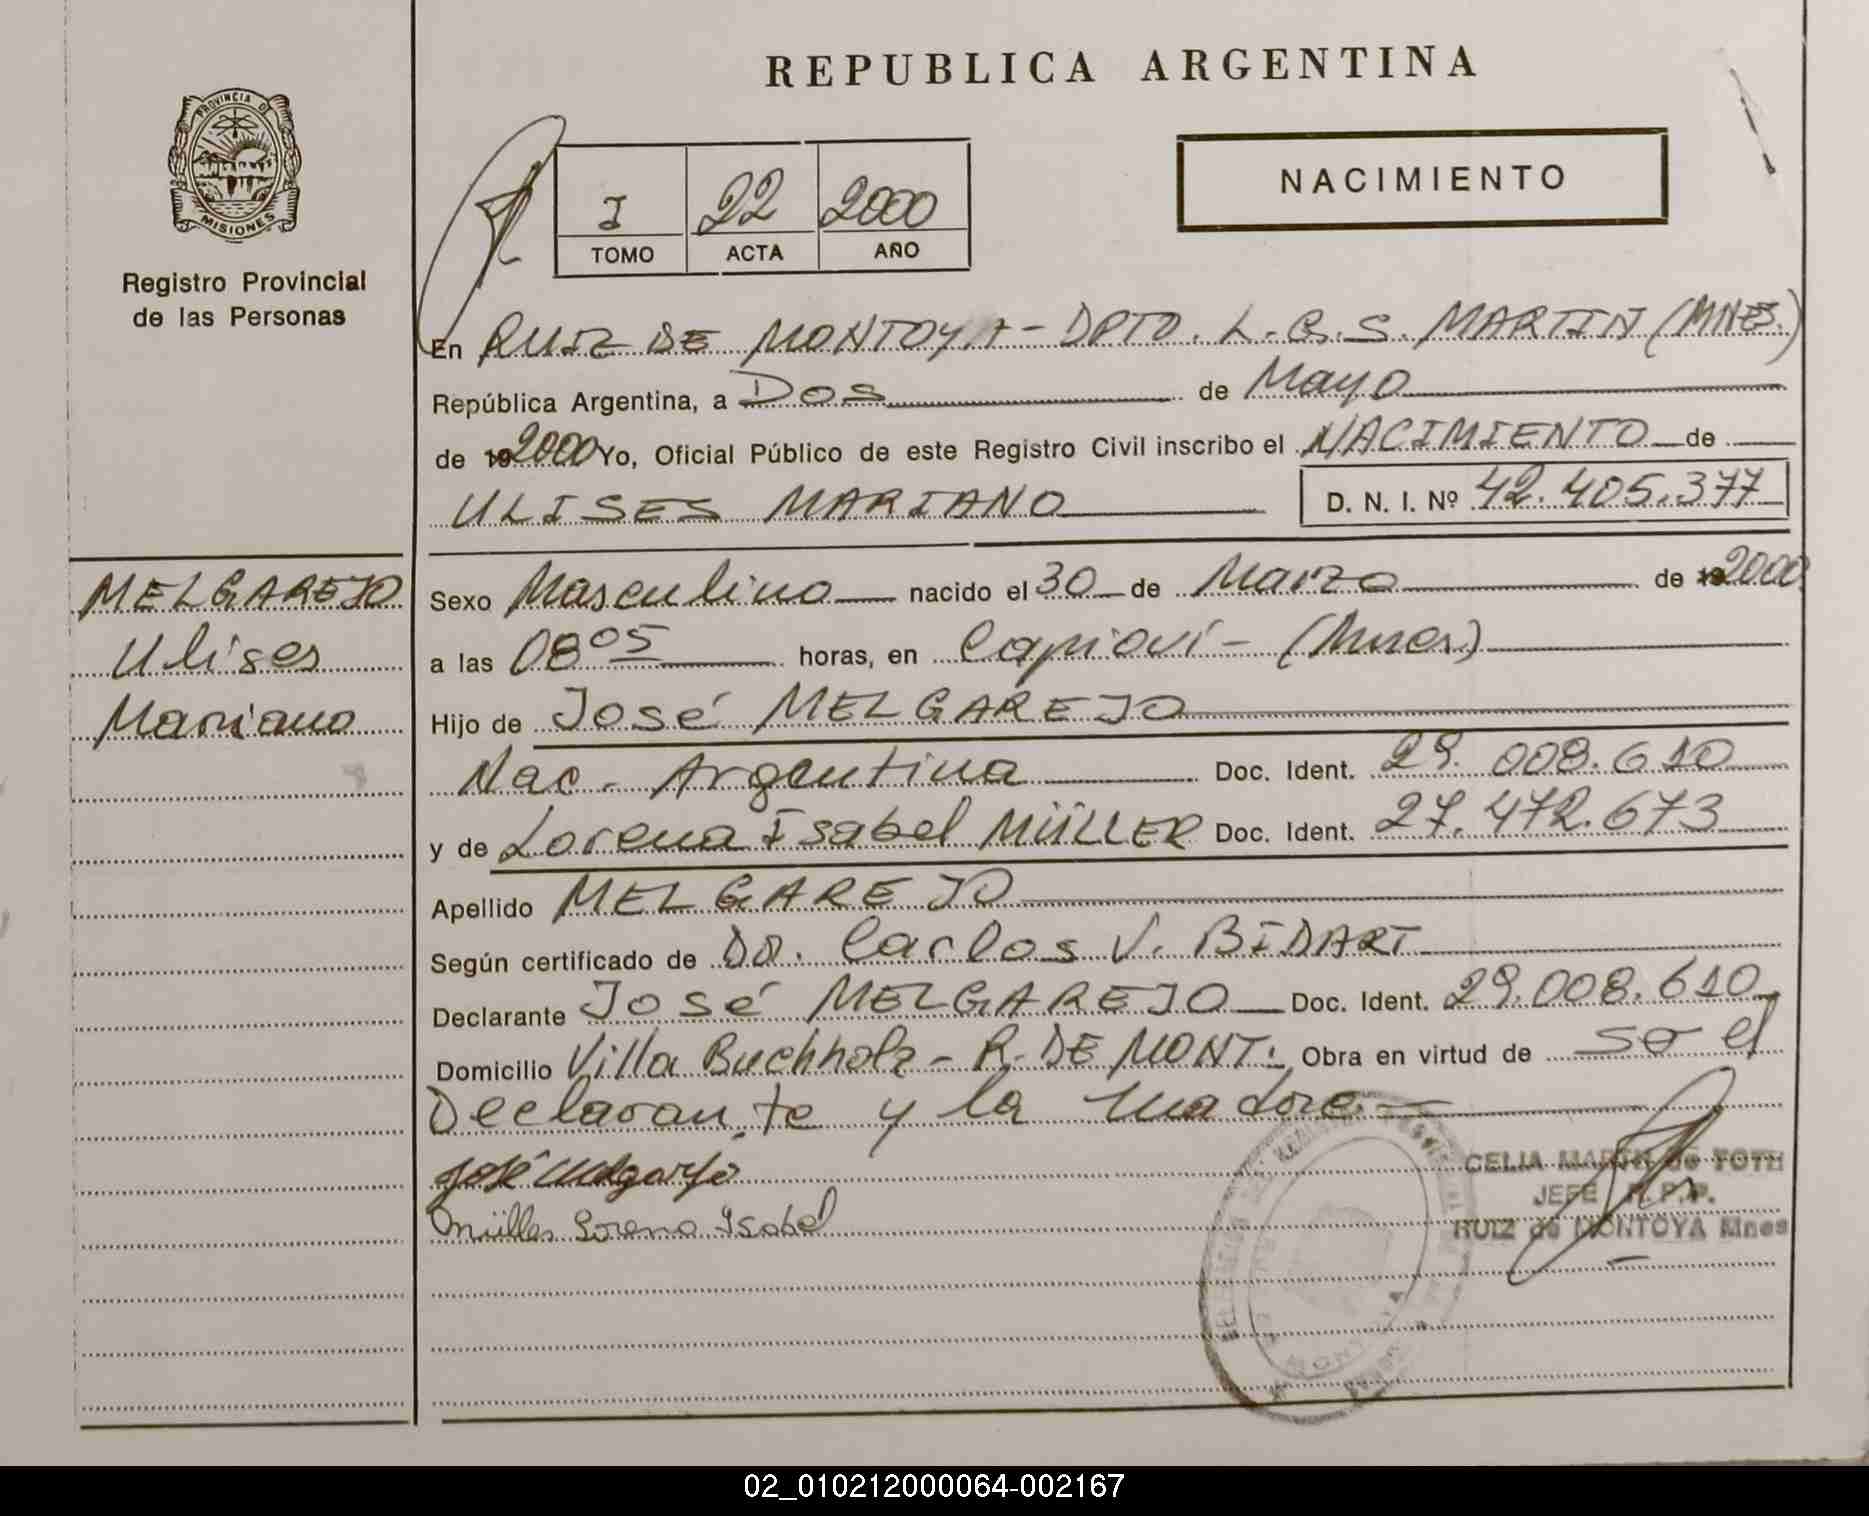 REPUBLICA ARGENTINA
PROVINCIA DE
MISIONES
Registro Provincial
de las Personas
I 22 2000
TOMO ACTA AÑO
NACIMIENTO
En RUIZ DE MONTOYA - DPTO. L.G.S. MARTIN (MNES.)
República Argentina, a Dos de Mayo
de 192000 Yo, Oficial Público de este Registro Civil inscribo el NACIMIENTO de
ULISES MARIANO D. N. I. Nº 42.405.377
MELGAREJO
Ulises
Mariano
Sexo Masculino nacido el 30 de Marzo de 192000
a las 08 05 horas, en Capioví - (Mnes)
Hijo de José MELGAREJO
Nac. Argentina Doc. Ident. 29.008.610
y de Lorena Isabel MÜLLER Doc. Ident. 27.472.673
Apellido MELGAREJO
Según certificado de Dr. Carlos V. BIDART
Declarante José MELGAREJO Doc. Ident. 29.008.610
Domicilio Villa Buchholz - R. DE MONT. Obra en virtud de ser el
Declarante y la madre
José Melgarejo
Müller Lorena Isabel
CELIA MARTA de TOTH
JEFE R.P.P.
RUIZ de MONTOYA Mnes
02_010212000064-002167